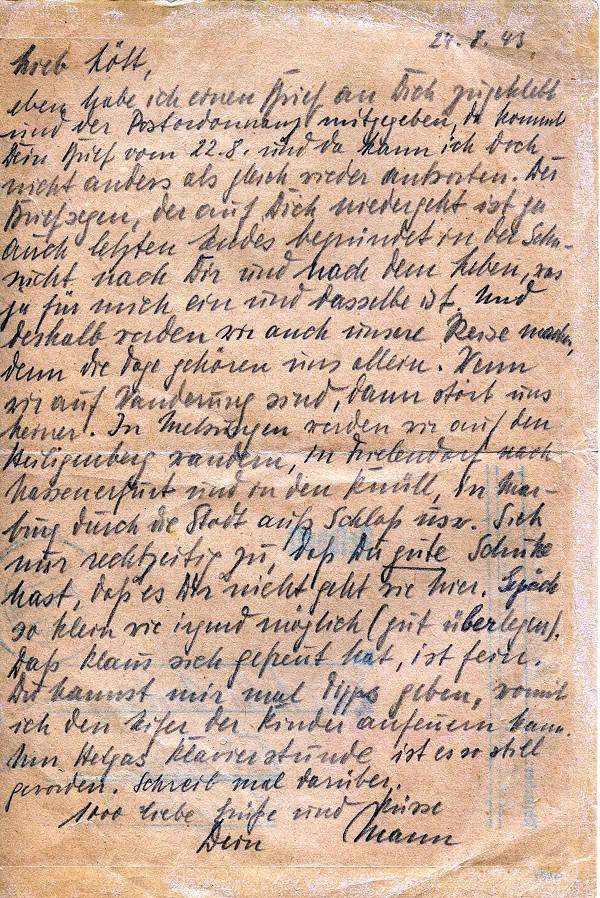 24. 8. 43.
Lieb Lött,
eben habe ich einen Brief an Dich zugeklebt
und der Postordonnanz mitgegeben, da kommt
Dein Brief vom 22.8. und da kann ich doch
nicht anders als gleich wieder antworten. Der
Briefsegen, der auf Dich niedergeht ist ja
auch letzten Endes begründet in der Sehn-
sucht nach Dir und nach dem Leben, was
ja für mich ein und dasselbe ist. Und
deshalb werden wir auch unsere Reise machen,
denn die Tage gehören uns allein. Wenn
wir auf Wanderung sind, dann stört uns
keiner. In Melsungen werden wir auf den
Heiligenberg wandern, in Treisendorf nach
Wassenerfurt und in den Knüll, in Mar-
burg durch die Stadt aufs Schloß usw. Sieh
nur rechtzeitig zu, daß Du gute Schuhe
hast, daß es Dir nicht geht wie hier. Gepäck
so klein wie irgend möglich (gut überlegen).
Daß Klaus sich gefreut hat, ist fein.
Du kannst mir mal Tipps geben, womit
ich den Eifer der Kinder anfeuern kann.
Um Helgas Klavierstunde ist es so still
geworden. Schreib mal darüber.
1000 liebe Grüße und Küsse
Dein Mann